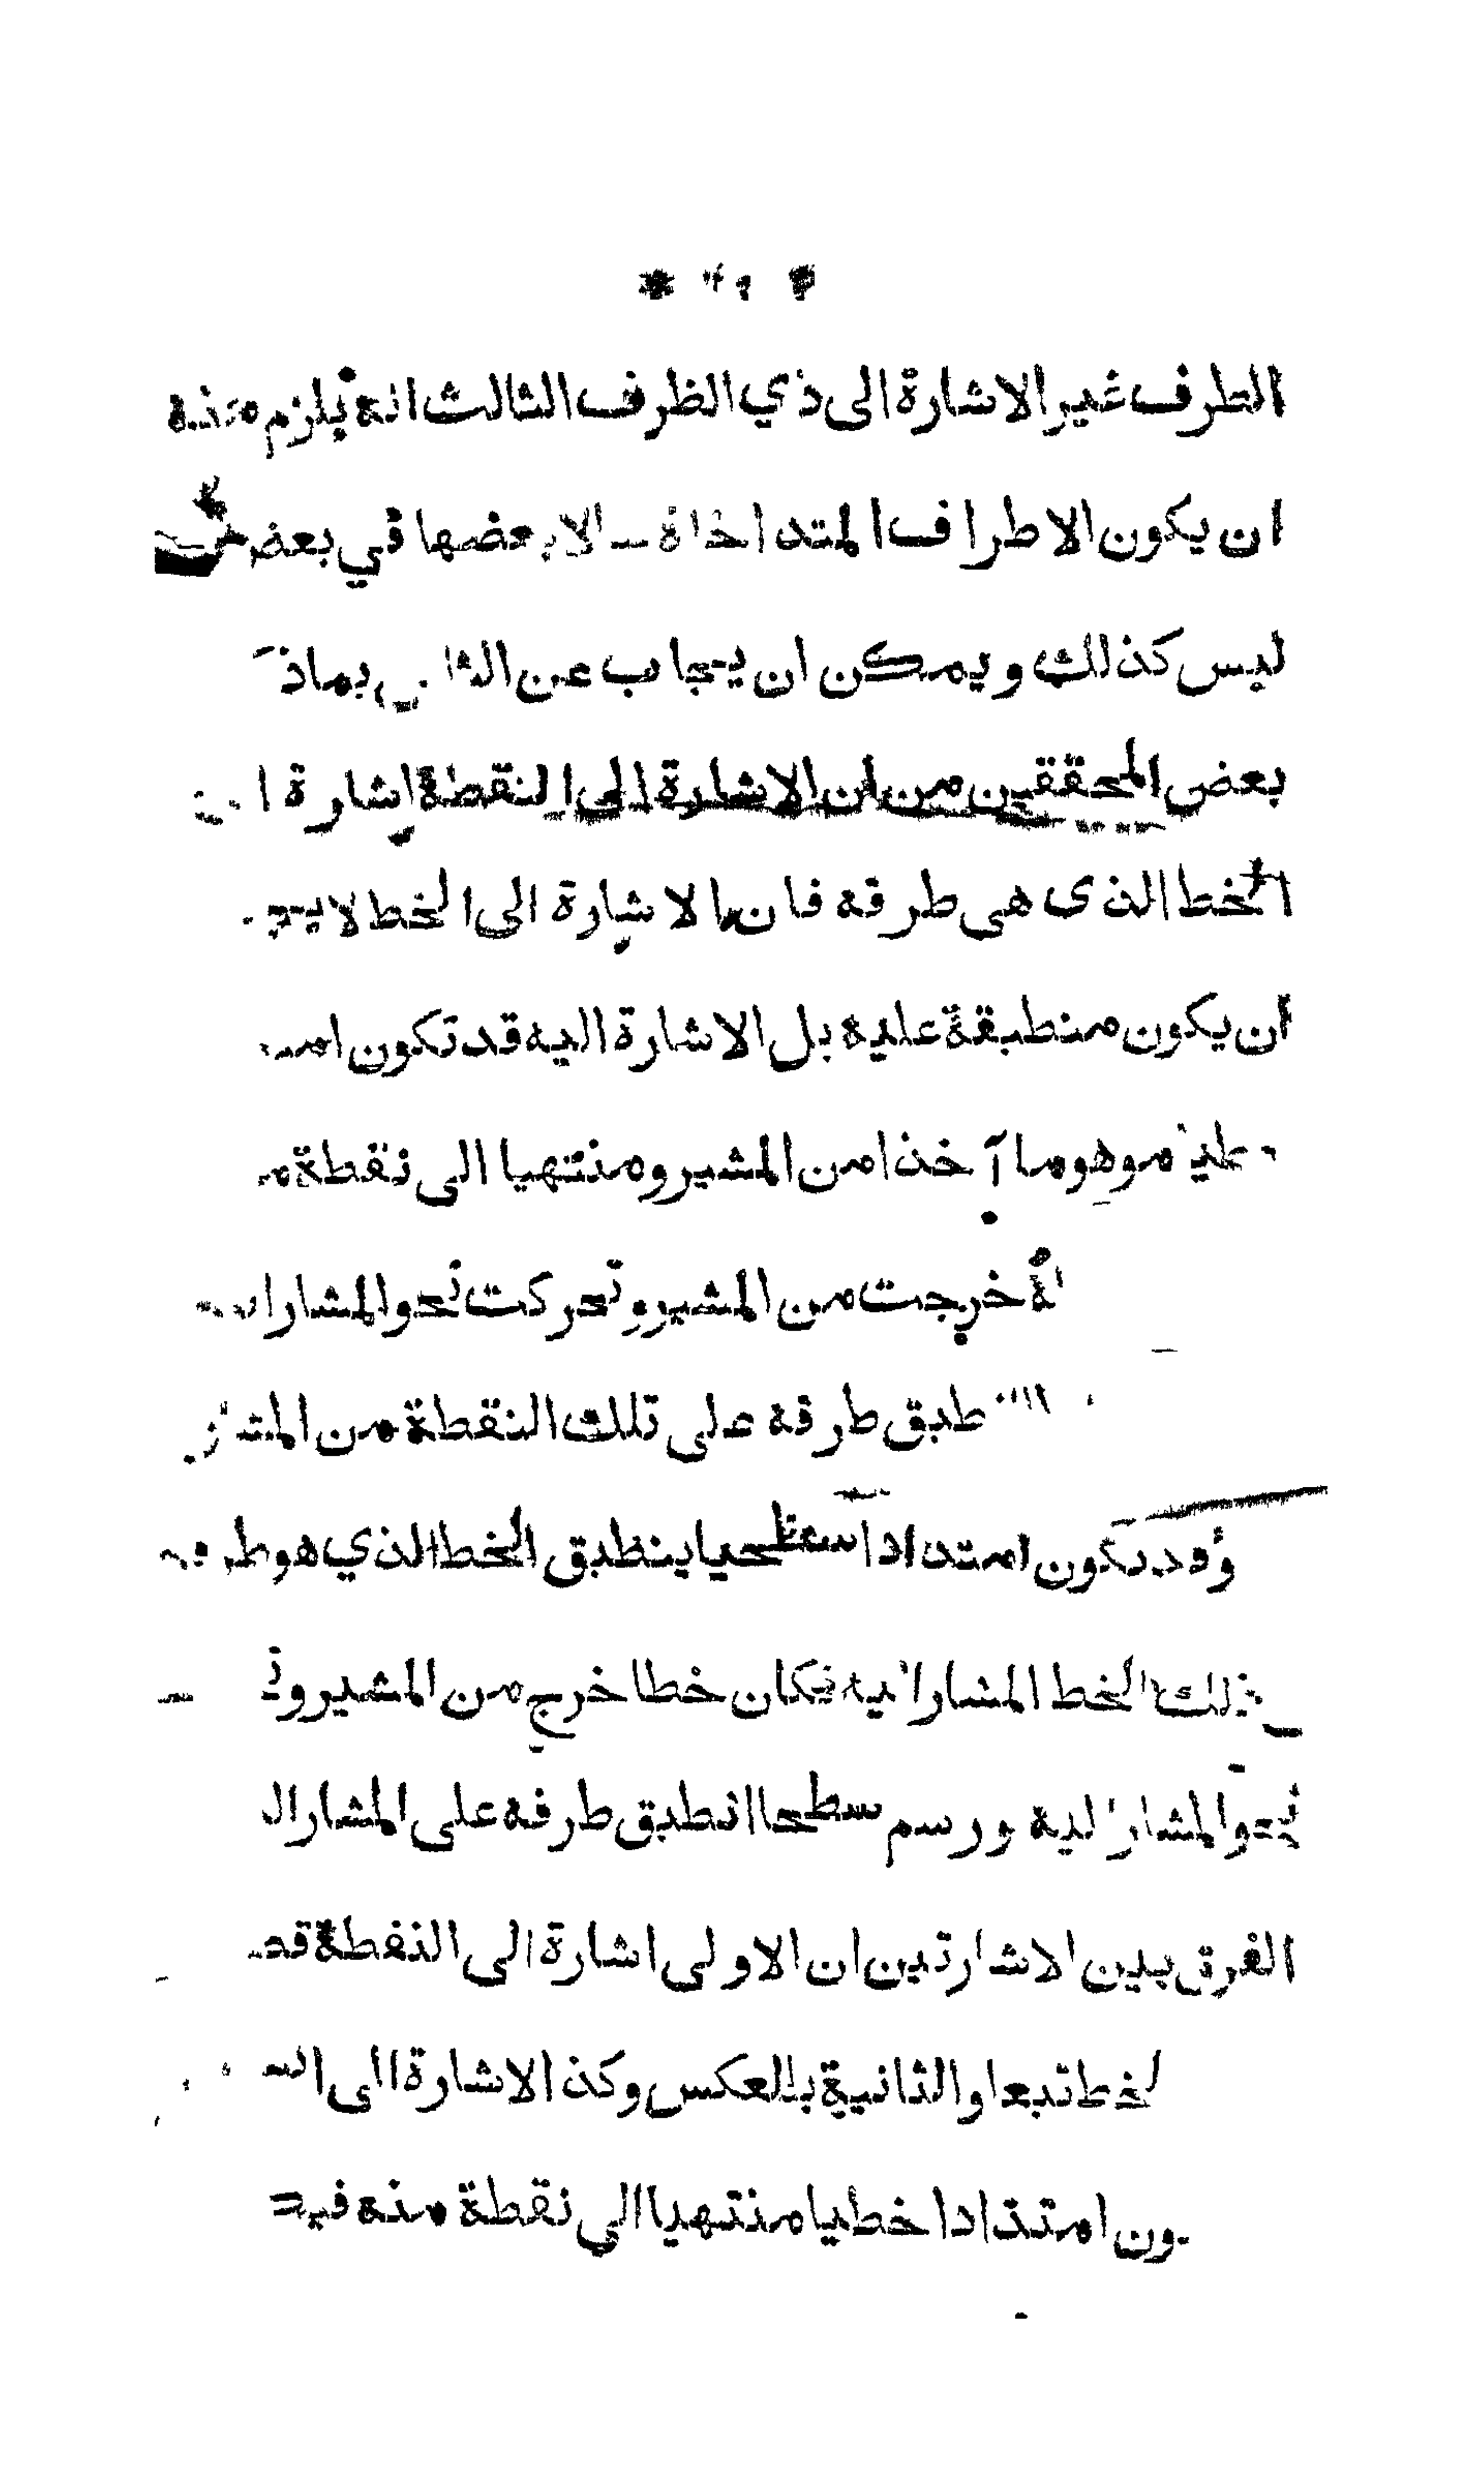 الطرف غير الاشارة الى ذي الظرف الثالث انه يلزم منه
ان يكون الاطراف المتداخاة بعضها في بعض
ليس كذلك ويمكن ان يجاب عن بما
بعض المحققين من ان الاشارة الى النقطة اشارة
الخط الذى هى طرفه فان الاشارة الى الخط لا
ان يكون منطبقة عليه بل الاشارة اليه قد تكون
موهوما آخذا من المشير ومنتهيا الى نقطة
خرجت من المشير وتحركت نحو المشار
طبق طرفه على تلك النقطة من
وقد يكون امتدادا سطحيا ينطبق الخط الذي هو
ذلك الخط المشار اليه فكان خطا خرج من المشير
نحو المشار اليه ورسم سطحا انطبق طرفه على المشار
الفرق بين الاشارتين ان الاولى اشارة الى النقطة
لخط تبعا والثانية بالعكس وكذ الاشارة الى
امتدادا خطيا منتهيا الي نقطة منه